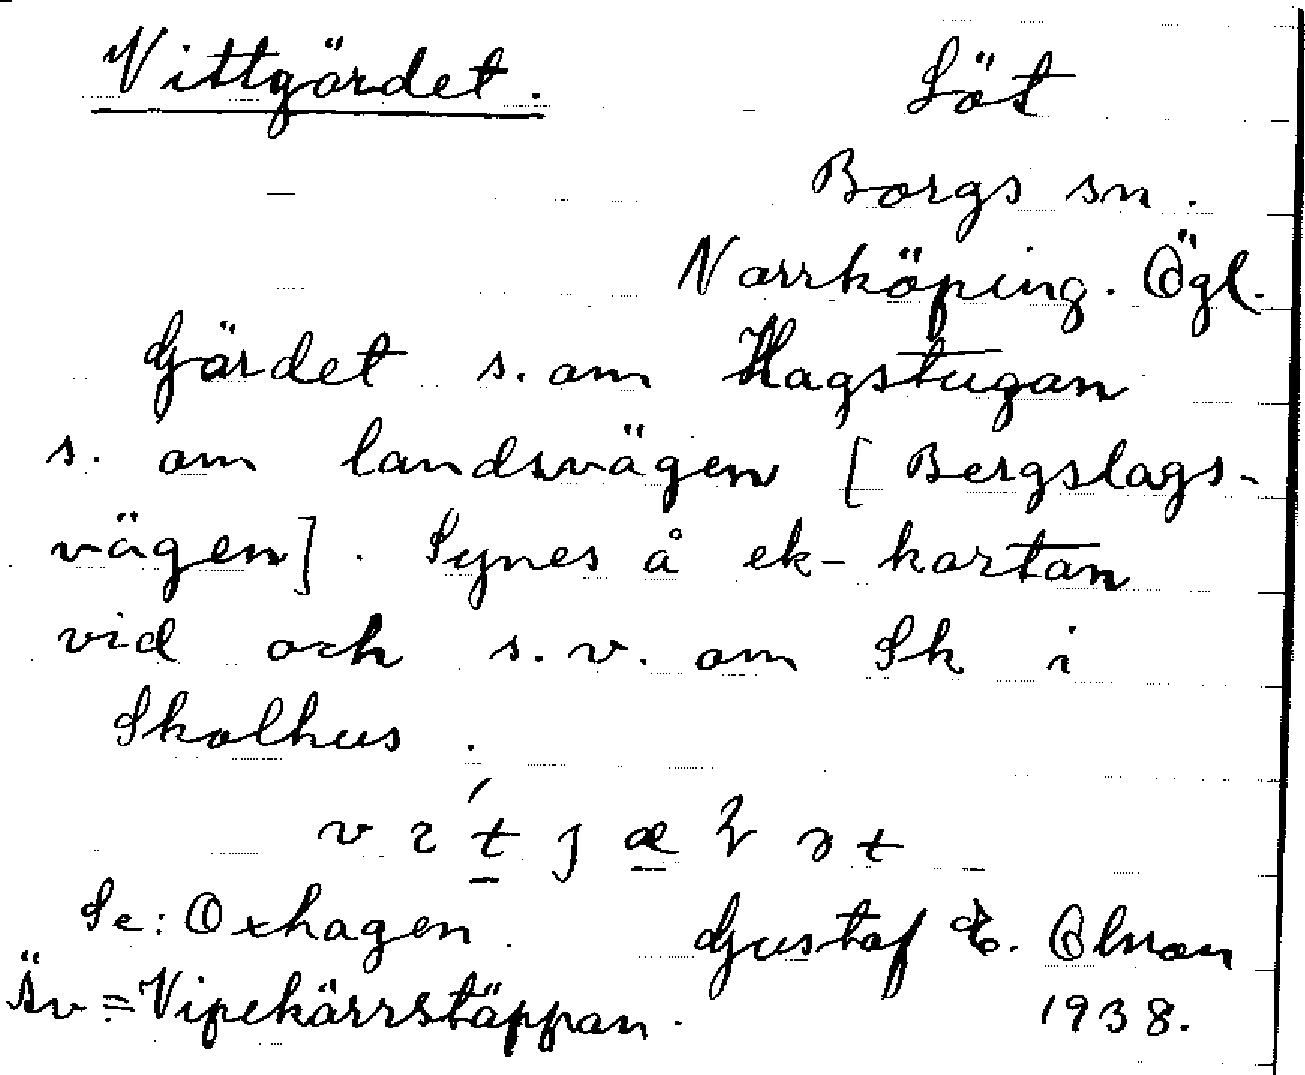 Vittgärdet.
Löt
Borgs sn.
Norrköping. Ögl.
Gärdet s. om Hagstugan
s. om landsvägen [Bergslags-
vägen]. Synes å ek-kartan
vid och s.v. om Sk i
Skolhus.
Se: Oxhagen.
Gustaf E. Olsson
Äv = Vipekärrstäppan.
1938.